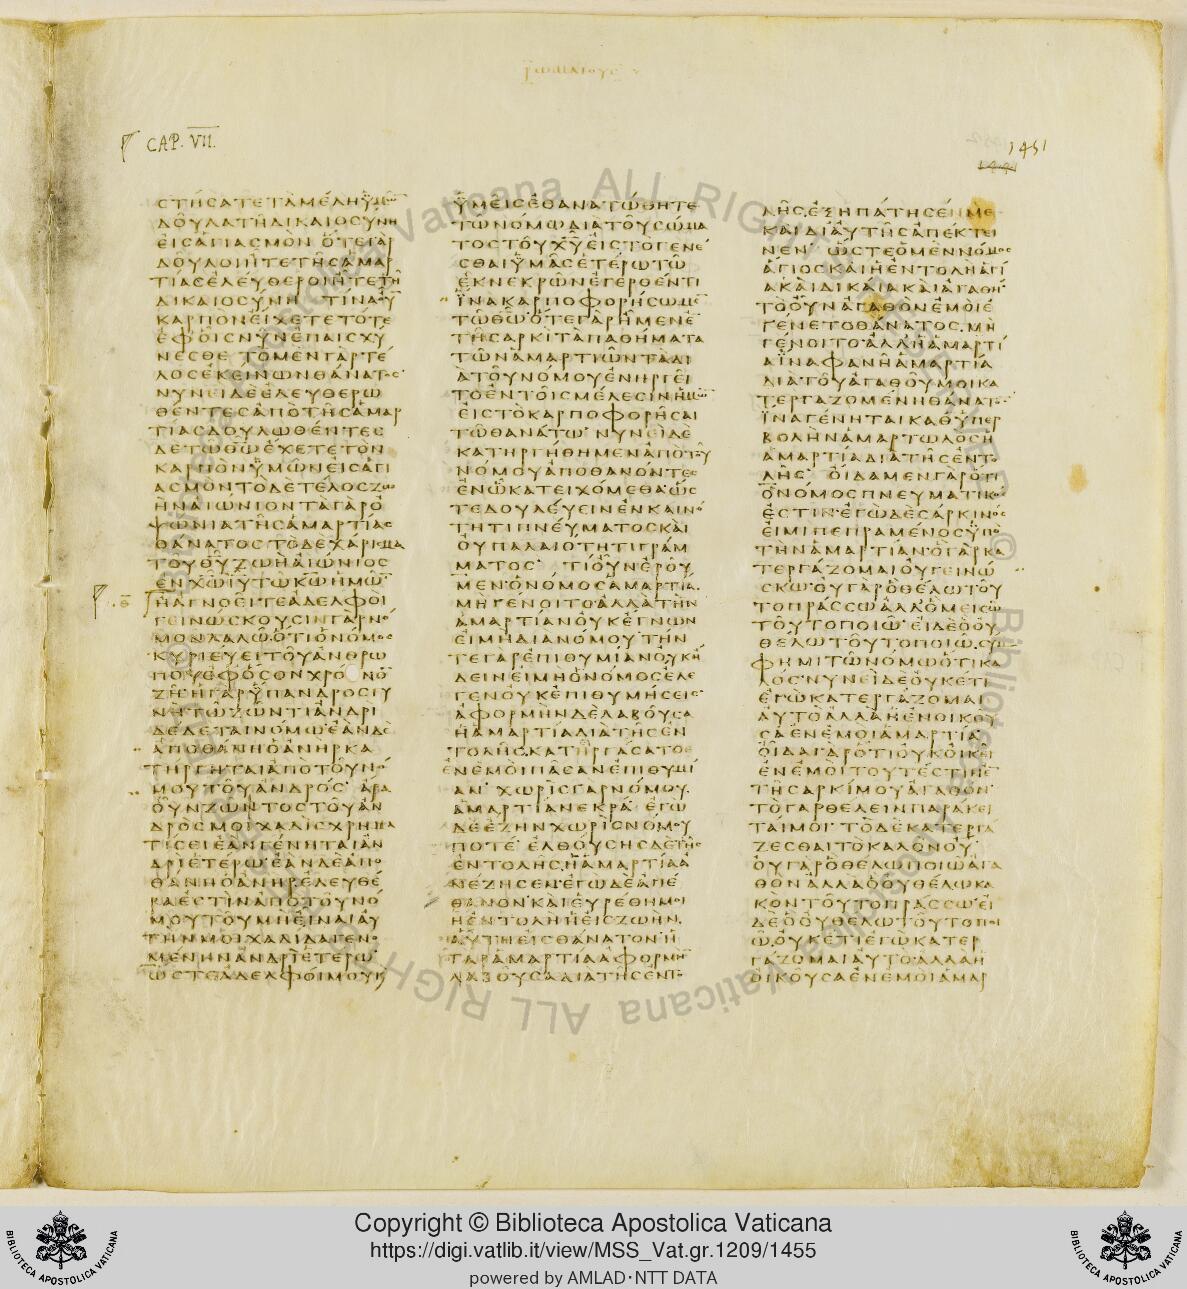 ΠΡΟΣ ΡΩΜΑΙΟΥΣ
CAP. VII.
1451
ϹΤΗϹΑΤΕΤΑΜΕΛΗΥΜΩ̅
ΔΟΥΛΑΤΗΔΙΚΑΙΟϹΥΝΗ
ΕΙϹΑΓΙΑϹΜΟΝΟΤΕΓΑΡ
ΔΟΥΛΟΙΗΤΕΤΗϹΑΜΑΡ
ΤΙΑϹΕΛΕΥΘΕΡΟΙΗΤΕΤΗ
ΔΙΚΑΙΟϹΥΝΗΤΙΝΑΟΥ̅
ΚΑΡΠΟΝΕΙΧΕΤΕΤΟΤΕ
ΕΦΟΙϹΝΥΝΕΠΑΙϹΧΥ
ΝΕϹΘΕΤΟΜΕΝΓΑΡΤΕ
ΛΟϹΕΚΕΙΝΩΝΘΑΝΑΤΟϹ
ΝΥΝΕΙΔΕΕΛΕΥΘΕΡΩ
ΘΕΝΤΕϹΑΠΟΤΗϹΑΜΑΡ
ΤΙΑϹΔΟΥΛΩΘΕΝΤΕϹ
ΔΕΤΩΘ̅Ω̅ΕΧΕΤΕΤΟΝ
ΚΑΡΠΟΝΥΜΩΝΕΙϹΑΓΙ
ΑϹΜΟΝΤΟΔΕΤΕΛΟϹΖΩ
ΗΝΑΙΩΝΙΟΝΤΑΓΑΡΟ
ΨΩΝΙΑΤΗϹΑΜΑΡΤΙΑϹ
ΘΑΝΑΤΟϹΤΟΔΕΧΑΡΙϹΜΑ
ΤΟΥΘ̅Υ̅ΖΩΗΑΙΩΝΙΟϹ
ΕΝΧ̅Ω̅Ι̅Υ̅ΤΩΚ̅Ω̅ΗΜΩ̅
ΗΑΓΝΟΕΙΤΕΑΔΕΛΦΟΙ
ΓΕΙΝΩϹΚΟΥϹΙΝΓΑΡΝΟ
ΜΟΝΛΑΛΩΟΤΙΟΝΟΜΟϹ
ΚΥΡΙΕΥΕΙΤΟΥΑΝΘΡΩ
ΠΟΥΕΦΟϹΟΝΧΡΟΝΟΝ
ΖΗΗΓΑΡΥΠΑΝΔΡΟϹΓΥ
ΝΗΤΩΖΩΝΤΙΑΝΔΡΙ
ΔΕΔΕΤΑΙΝΟΜΩΕΑΝΔΕ
ΑΠΟΘΑΝΗΟΑΝΗΡΚΑ
ΤΗΡΓΗΤΑΙΑΠΟΤΟΥΝΟ
ΜΟΥΤΟΥΑΝΔΡΟϹΑΡΑ
ΟΥΝΖΩΝΤΟϹΤΟΥΑΝ
ΔΡΟϹΜΟΙΧΑΛΙϹΧΡΗΜΑ
ΤΙϹΕΙΕΑΝΓΕΝΗΤΑΙΑΝ
ΔΡΙΕΤΕΡΩΕΑΝΔΕΑΠΟ
ΘΑΝΗΟΑΝΗΡΕΛΕΥΘΕ
ΡΑΕϹΤΙΝΑΠΟΤΟΥΝΟ
ΜΟΥΤΟΥΜΗΕΙΝΑΙΑΥ
ΤΗΝΜΟΙΧΑΛΙΔΑΓΕΝΟ
ΜΕΝΗΝΑΝΔΡΙΕΤΕΡΩ
ΩϹΤΕΑΔΕΛΦΟΙΜΟΥΚ
ΥΜΕΙϹΕΘΑΝΑΤΩΘΗΤΕ
ΤΩΝΟΜΩΔΙΑΤΟΥϹΩΜΑ
ΤΟϹΤΟΥΧ̅Υ̅ΕΙϹΤΟΓΕΝΕ
ϹΘΑΙΥΜΑϹΕΤΕΡΩΤΩ
ΕΚΝΕΚΡΩΝΕΓΕΡΘΕΝΤΙ
ΙΝΑΚΑΡΠΟΦΟΡΗϹΩΜΕ̅
ΤΩΘ̅Ω̅ΟΤΕΓΑΡΗΜΕΝΕ̅
ΤΗϹΑΡΚΙΤΑΠΑΘΗΜΑΤΑ
ΤΩΝΑΜΑΡΤΙΩΝΤΑΔΙ
ΑΤΟΥΝΟΜΟΥΕΝΗΡΓΕΙ
ΤΟΕΝΤΟΙϹΜΕΛΕϹΙΝΗΜΩ̅
ΕΙϹΤΟΚΑΡΠΟΦΟΡΗϹΑΙ
ΤΩΘΑΝΑΤΩΝΥΝΕΙΔΕ
ΚΑΤΗΡΓΗΘΗΜΕΝΑΠΟΤΟΥ
ΝΟΜΟΥΑΠΟΘΑΝΟΝΤΕϹ
ΕΝΩΚΑΤΕΙΧΟΜΕΘΑΩϹ
ΤΕΔΟΥΛΕΥΕΙΝΕΝΚΑΙΝΟ
ΤΗΤΙΠΝΕΥΜΑΤΟϹΚΑΙ
ΟΥΠΑΛΑΙΟΤΗΤΙΓΡΑΜ
ΜΑΤΟϹΤΙΟΥΝΕΡΟΥ
ΜΕΝΟΝΟΜΟϹΑΜΑΡΤΙΑ
ΜΗΓΕΝΟΙΤΟΑΛΛΑΤΗΝ
ΑΜΑΡΤΙΑΝΟΥΚΕΓΝΩΝ
ΕΙΜΗΔΙΑΝΟΜΟΥΤΗΝ
ΤΕΓΑΡΕΠΙΘΥΜΙΑΝΟΥΚΗ
ΔΕΙΝΕΙΜΗΟΝΟΜΟϹΕΛΕ
ΓΕΝΟΥΚΕΠΙΘΥΜΗϹΕΙϹ
ΑΦΟΡΜΗΝΔΕΛΑΒΟΥϹΑ
ΗΑΜΑΡΤΙΑΔΙΑΤΗϹΕΝ
ΤΟΛΗϹΚΑΤΗΡΓΑϹΑΤΟ
ΕΝΕΜΟΙΠΑϹΑΝΕΠΙΘΥΜΙ
ΑΝΧΩΡΙϹΓΑΡΝΟΜΟΥ
ΑΜΑΡΤΙΑΝΕΚΡΑΕΓΩ
ΔΕΕΖΗΝΧΩΡΙϹΝΟΜΟΥ
ΠΟΤΕΕΛΘΟΥϹΗϹΔΕΤΗϹ
ΕΝΤΟΛΗϹΗΑΜΑΡΤΙΑΑ
ΝΕΖΗϹΕΝΕΓΩΔΕΑΠΕ
ΘΑΝΟΝΚΑΙΕΥΡΕΘΗΜΟΙ
ΗΕΝΤΟΛΗΗΕΙϹΖΩΗΝ
ΑΥΤΗΕΙϹΘΑΝΑΤΟΝΗ
ΓΑΡΑΜΑΡΤΙΑΑΦΟΡΜΗ̅
ΛΑΒΟΥϹΑΔΙΑΤΗϹΕΝΤΟ
ΛΗϹΕΞΗΠΑΤΗϹΕΝΜΕ
ΚΑΙΔΙΑΥΤΗϹΑΠΕΚΤΕΙ
ΝΕΝΩϹΤΕΟΜΕΝΝΟΜΟϹ
ΑΓΙΟϹΚΑΙΗΕΝΤΟΛΗΑΓΙ
ΑΚΑΙΔΙΚΑΙΑΚΑΙΑΓΑΘΗ
ΤΟΟΥΝΑΓΑΘΟΝΕΜΟΙΕ
ΓΕΝΕΤΟΘΑΝΑΤΟϹΜΗ
ΓΕΝΟΙΤΟΑΛΛΗΑΜΑΡΤΙ
ΑΙΝΑΦΑΝΗΑΜΑΡΤΙΑ
ΔΙΑΤΟΥΑΓΑΘΟΥΜΟΙΚΑ
ΤΕΡΓΑΖΟΜΕΝΗΘΑΝΑΤΟ̅
ΙΝΑΓΕΝΗΤΑΙΚΑΘΥΠΕΡ
ΒΟΛΗΝΑΜΑΡΤΩΛΟϹΗ
ΑΜΑΡΤΙΑΔΙΑΤΗϹΕΝΤΟ
ΛΗϹΟΙΔΑΜΕΝΓΑΡΟΤΙ
ΟΝΟΜΟϹΠΝΕΥΜΑΤΙΚΟϹ
ΕϹΤΙΝΕΓΩΔΕϹΑΡΚΙΝΟϹ
ΕΙΜΙΠΕΠΡΑΜΕΝΟϹΥΠΟ
ΤΗΝΑΜΑΡΤΙΑΝΟΓΑΡΚΑ
ΤΕΡΓΑΖΟΜΑΙΟΥΓΕΙΝΩ
ϹΚΩΟΥΓΑΡΟΘΕΛΩΤΟΥ
ΤΟΠΡΑϹϹΩΑΛΛΟΜΕΙϹΩ
ΤΟΥΤΟΠΟΙΩΕΙΔΕΟΟΥ
ΘΕΛΩΤΟΥΤΟΠΟΙΩϹΥΜ
ΦΗΜΙΤΩΝΟΜΩΟΤΙΚΑ
ΛΟϹΝΥΝΕΙΔΕΟΥΚΕΤΙ
ΕΓΩΚΑΤΕΡΓΑΖΟΜΑΙ
ΑΥΤΟΑΛΛΑΗΕΝΟΙΚΟΥ
ϹΑΕΝΕΜΟΙΑΜΑΡΤΙΑ
ΟΙΔΑΓΑΡΟΤΙΟΥΚΟΙΚΕΙ
ΕΝΕΜΟΙΤΟΥΤΕϹΤΙΝΕ̅
ΤΗϹΑΡΚΙΜΟΥΑΓΑΘΟΝ
ΤΟΓΑΡΘΕΛΕΙΝΠΑΡΑΚΕΙ
ΤΑΙΜΟΙΤΟΔΕΚΑΤΕΡΓΑ
ΖΕϹΘΑΙΤΟΚΑΛΟΝΟΥ
ΟΥΓΑΡΟΘΕΛΩΠΟΙΩΑΓΑ
ΘΟΝΑΛΛΑΟΟΥΘΕΛΩΚΑ
ΚΟΝΤΟΥΤΟΠΡΑϹϹΩΕΙ
ΔΕΟΟΥΘΕΛΩΤΟΥΤΟΠΟΙ
ΩΟΥΚΕΤΙΕΓΩΚΑΤΕΡ
ΓΑΖΟΜΑΙΑΥΤΟΑΛΛΑΗ
ΟΙΚΟΥϹΑΕΝΕΜΟΙΑΜΑΡ
Copyright © Biblioteca Apostolica Vaticana
https://digi.vatlib.it/view/MSS_Vat.gr.1209/1455
powered by AMLAD·NTT DATA
BIBLIOTECA APOSTOLICA VATICANA
BIBLIOTECA APOSTOLICA VATICANA